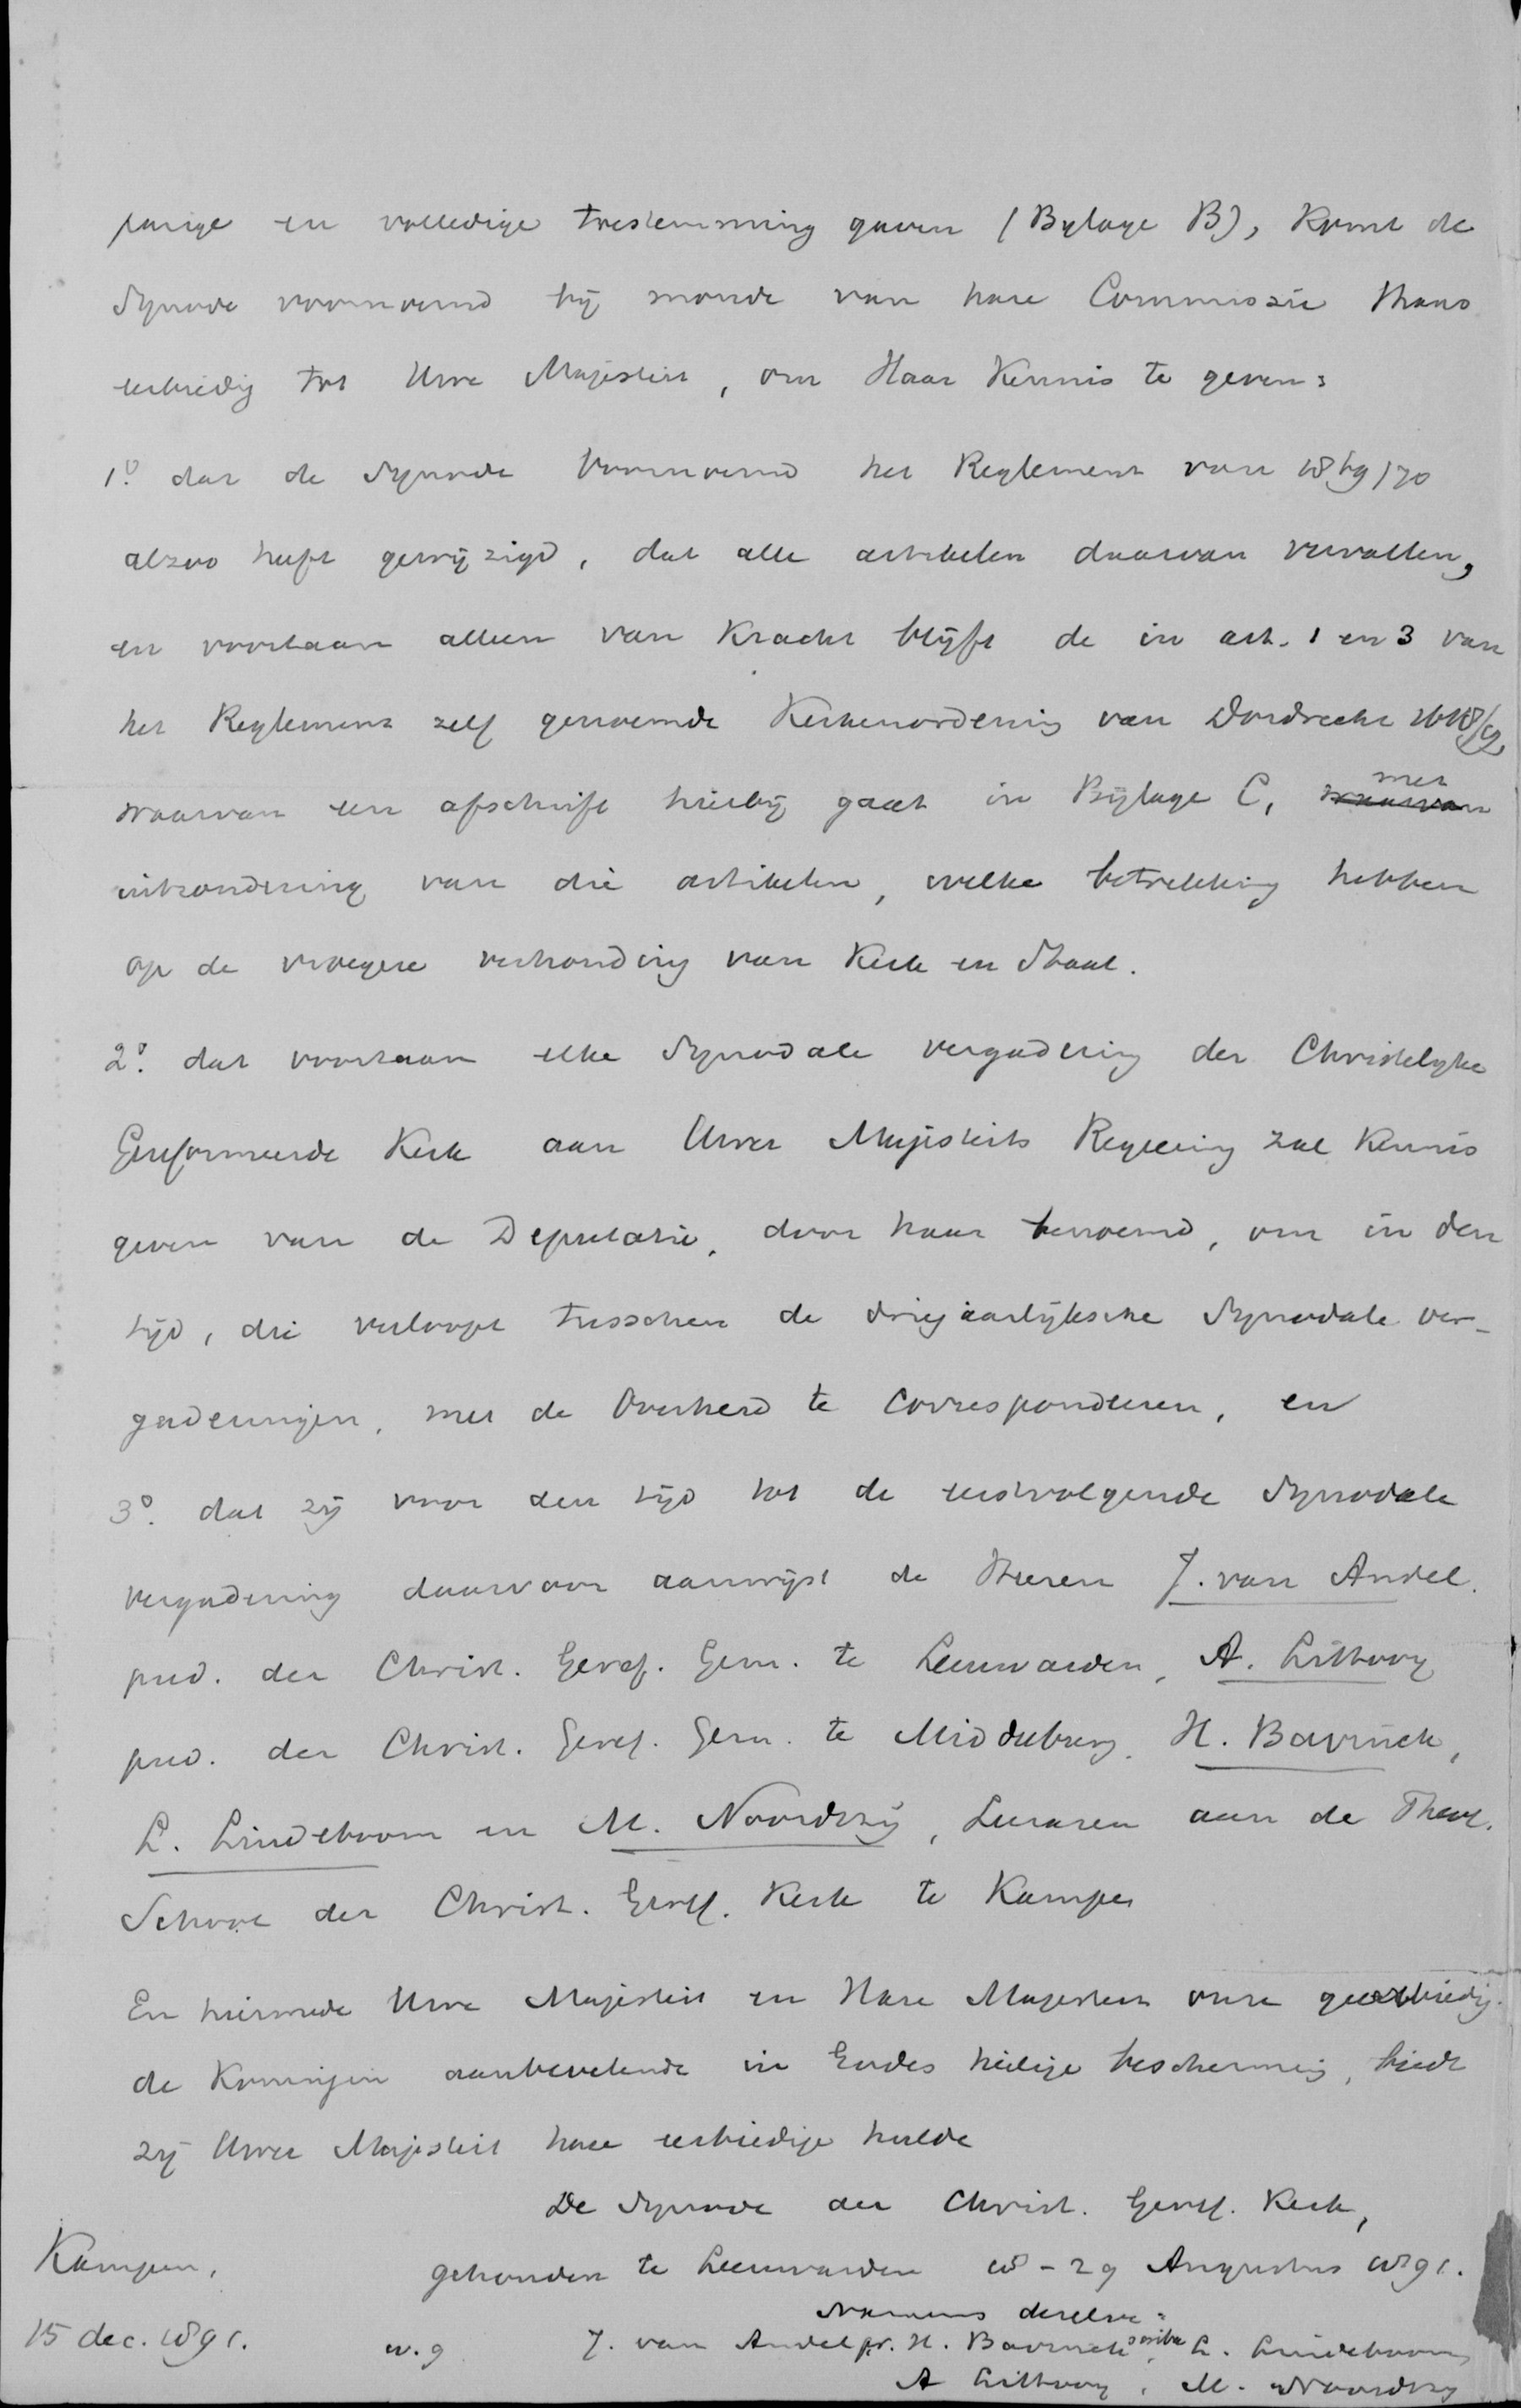 parige en volledige toestemming gaven (Bylage B), komt de
Synode voornoemd bij monde van hare Commissie thans
eerbiedig tot Uwe Majesteit, om Haar kennis te geven:
1º. dat de Synode voornoemd het Reglement van 1869/70
alzoo heeft gewijzigd, dat alle artikelen daarvan vervallen,
en voortaan alleen van kracht blijft de in art. 1 en 3 van
het Reglement zelf genoemde Kerkenordening van Dordrecht 1618/19
waarvan een afschrift hierbij gaat in Bijlage C, met
uitzondering van die artikelen, welke betrekking hebben
op de vroegere verhouding van Kerk en Staat.
2º. dat voortaan elke Synodale vergadering der Christelyke
Gereformeerde Kerk aan Uwer Majesteits Regeering zal kennis
geven van de Deputatie, door haar benoemd, om in den
tijd, die verloopt tusschen de driejaarlijksche Synodale ver-
gaderingen, met de Overheid te correspondeeren, en
3º. dat zij voor den tijd tot de eerstvolgende Synodale
vergadering daarvoor aanwijst de Heeren J. van Andel.
pred. der Christ. Geref. Gem. te Leeuwarden, A. Littooy
pred. der Christ. Geref. Gem. te Middelburg, H. Bavinck,
L. Lindeboom en M. Noordtzij, Leeraren aan de Theol.
School der Christ. Geref. Kerk te Kampen
En hiermede Uwe Majesteit en Hare Majesteit onze geeerbiedig-
de Koningin aanbevelende in Godes heilige bescherming, biedt
zij Uwer Majesteit hare eerbiedige hulde
De Synode der Christ. Geref. Kerk,
gehouden te Leeuwarden 18-29 Augustus 1891.
Kampen,
15 dec. 1891.
Namens dezelve:
w.g J. van Andel pr. H. Bavinck scriba, L. Lindeboom
A Littooy, M. Noordtzy